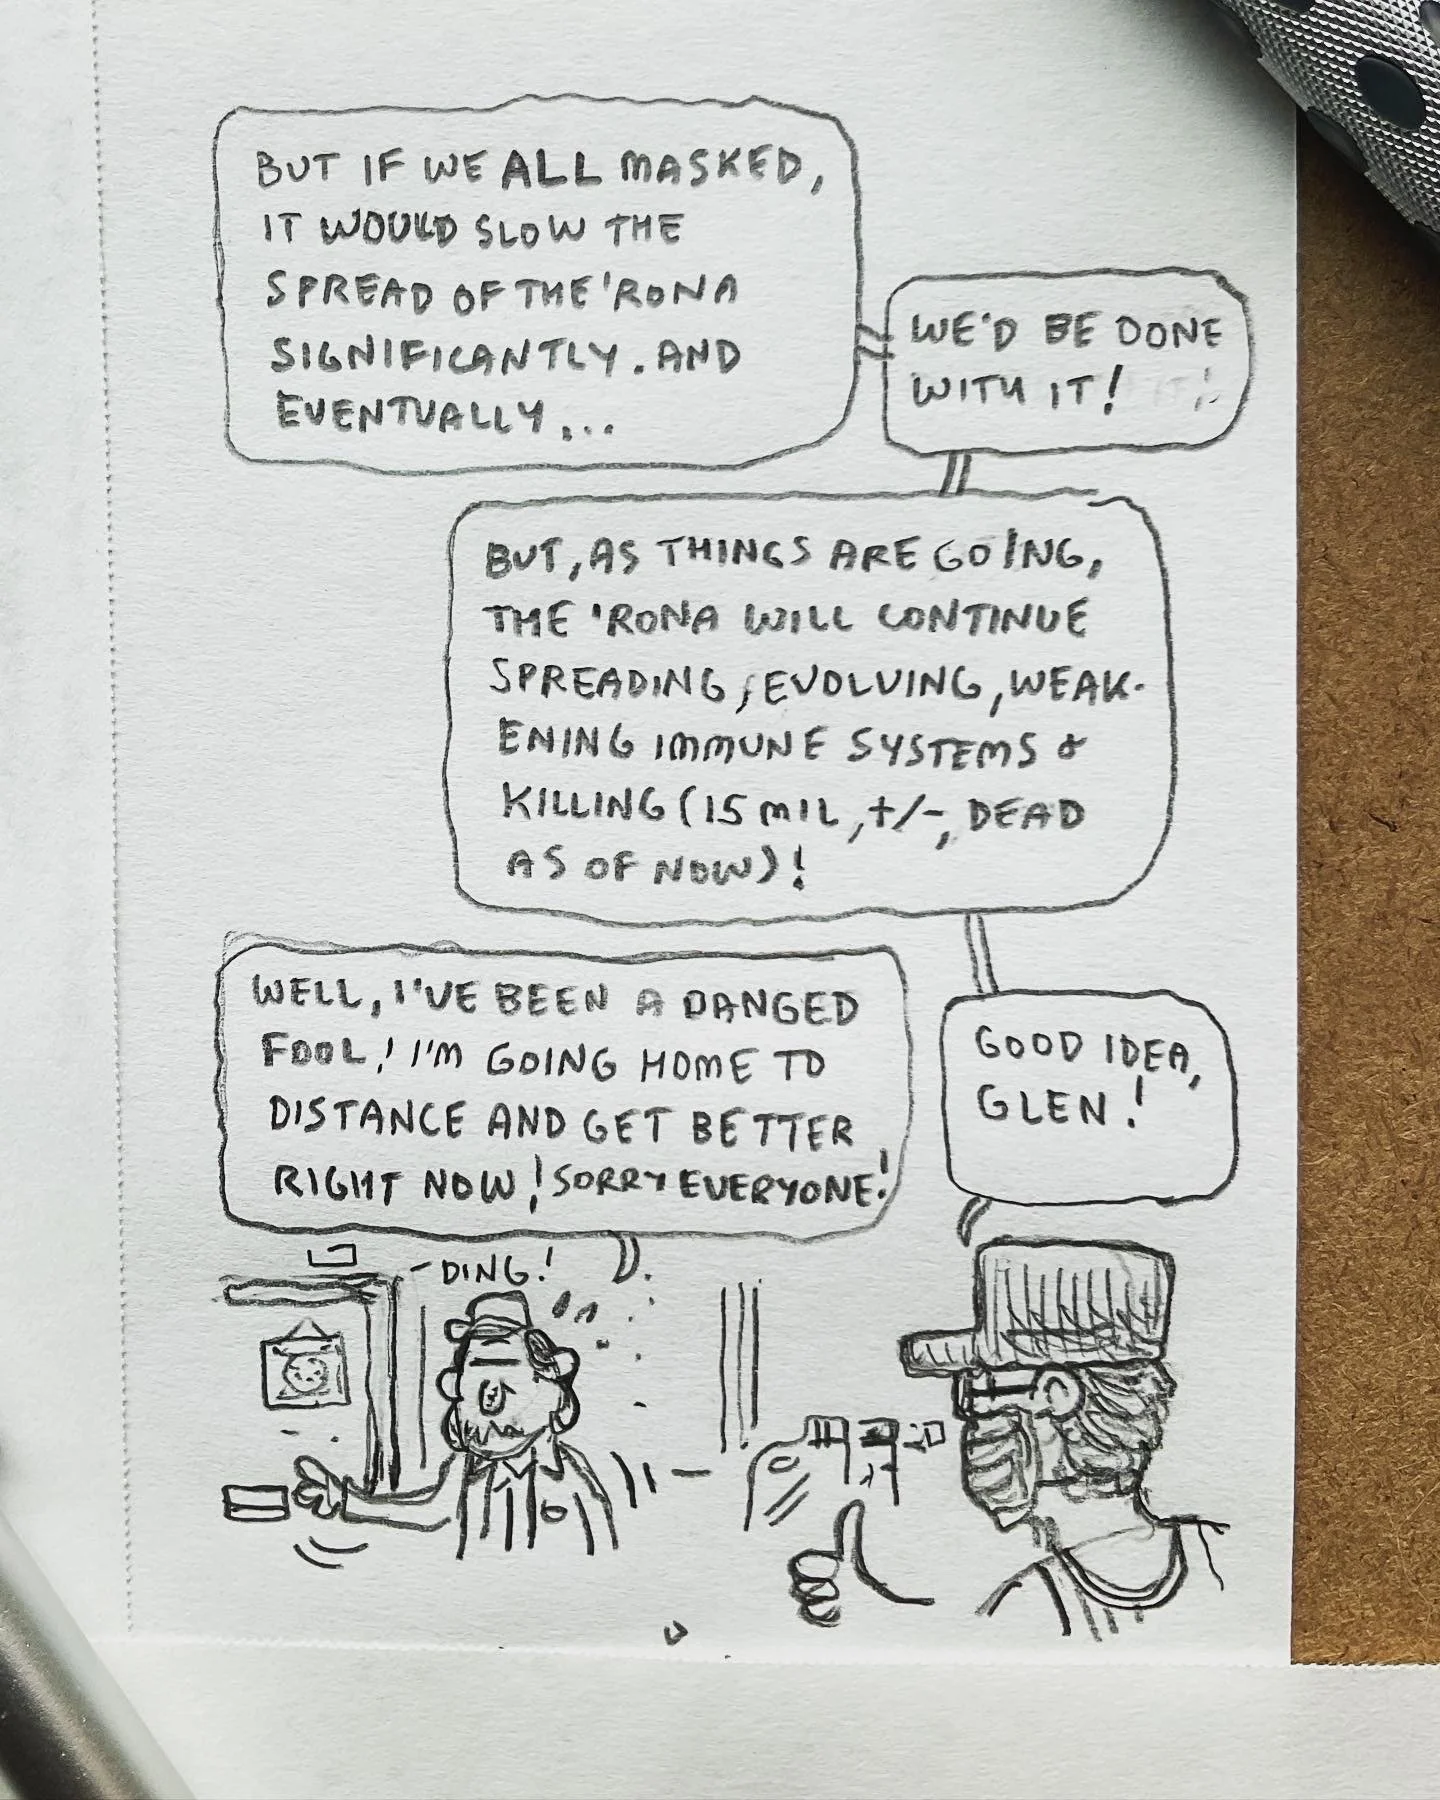 BUT IF WE ALL MASKED,
IT WOULD SLOW THE
SPREAD OF THE 'RONA
SIGNIFICANTLY. AND
EVENTUALLY...
WE'D BE DONE
WITH IT!
BUT, AS THINGS ARE GOING,
THE 'RONA WILL CONTINUE
SPREADING, EVOLVING, WEAK-
ENING IMMUNE SYSTEMS &
KILLING (15 MIL, +/-, DEAD
AS OF NOW)!
WELL, I'VE BEEN A DANGED
FOOL! I'M GOING HOME TO
DISTANCE AND GET BETTER
RIGHT NOW! SORRY EVERYONE!
GOOD IDEA,
GLEN!
-DING!